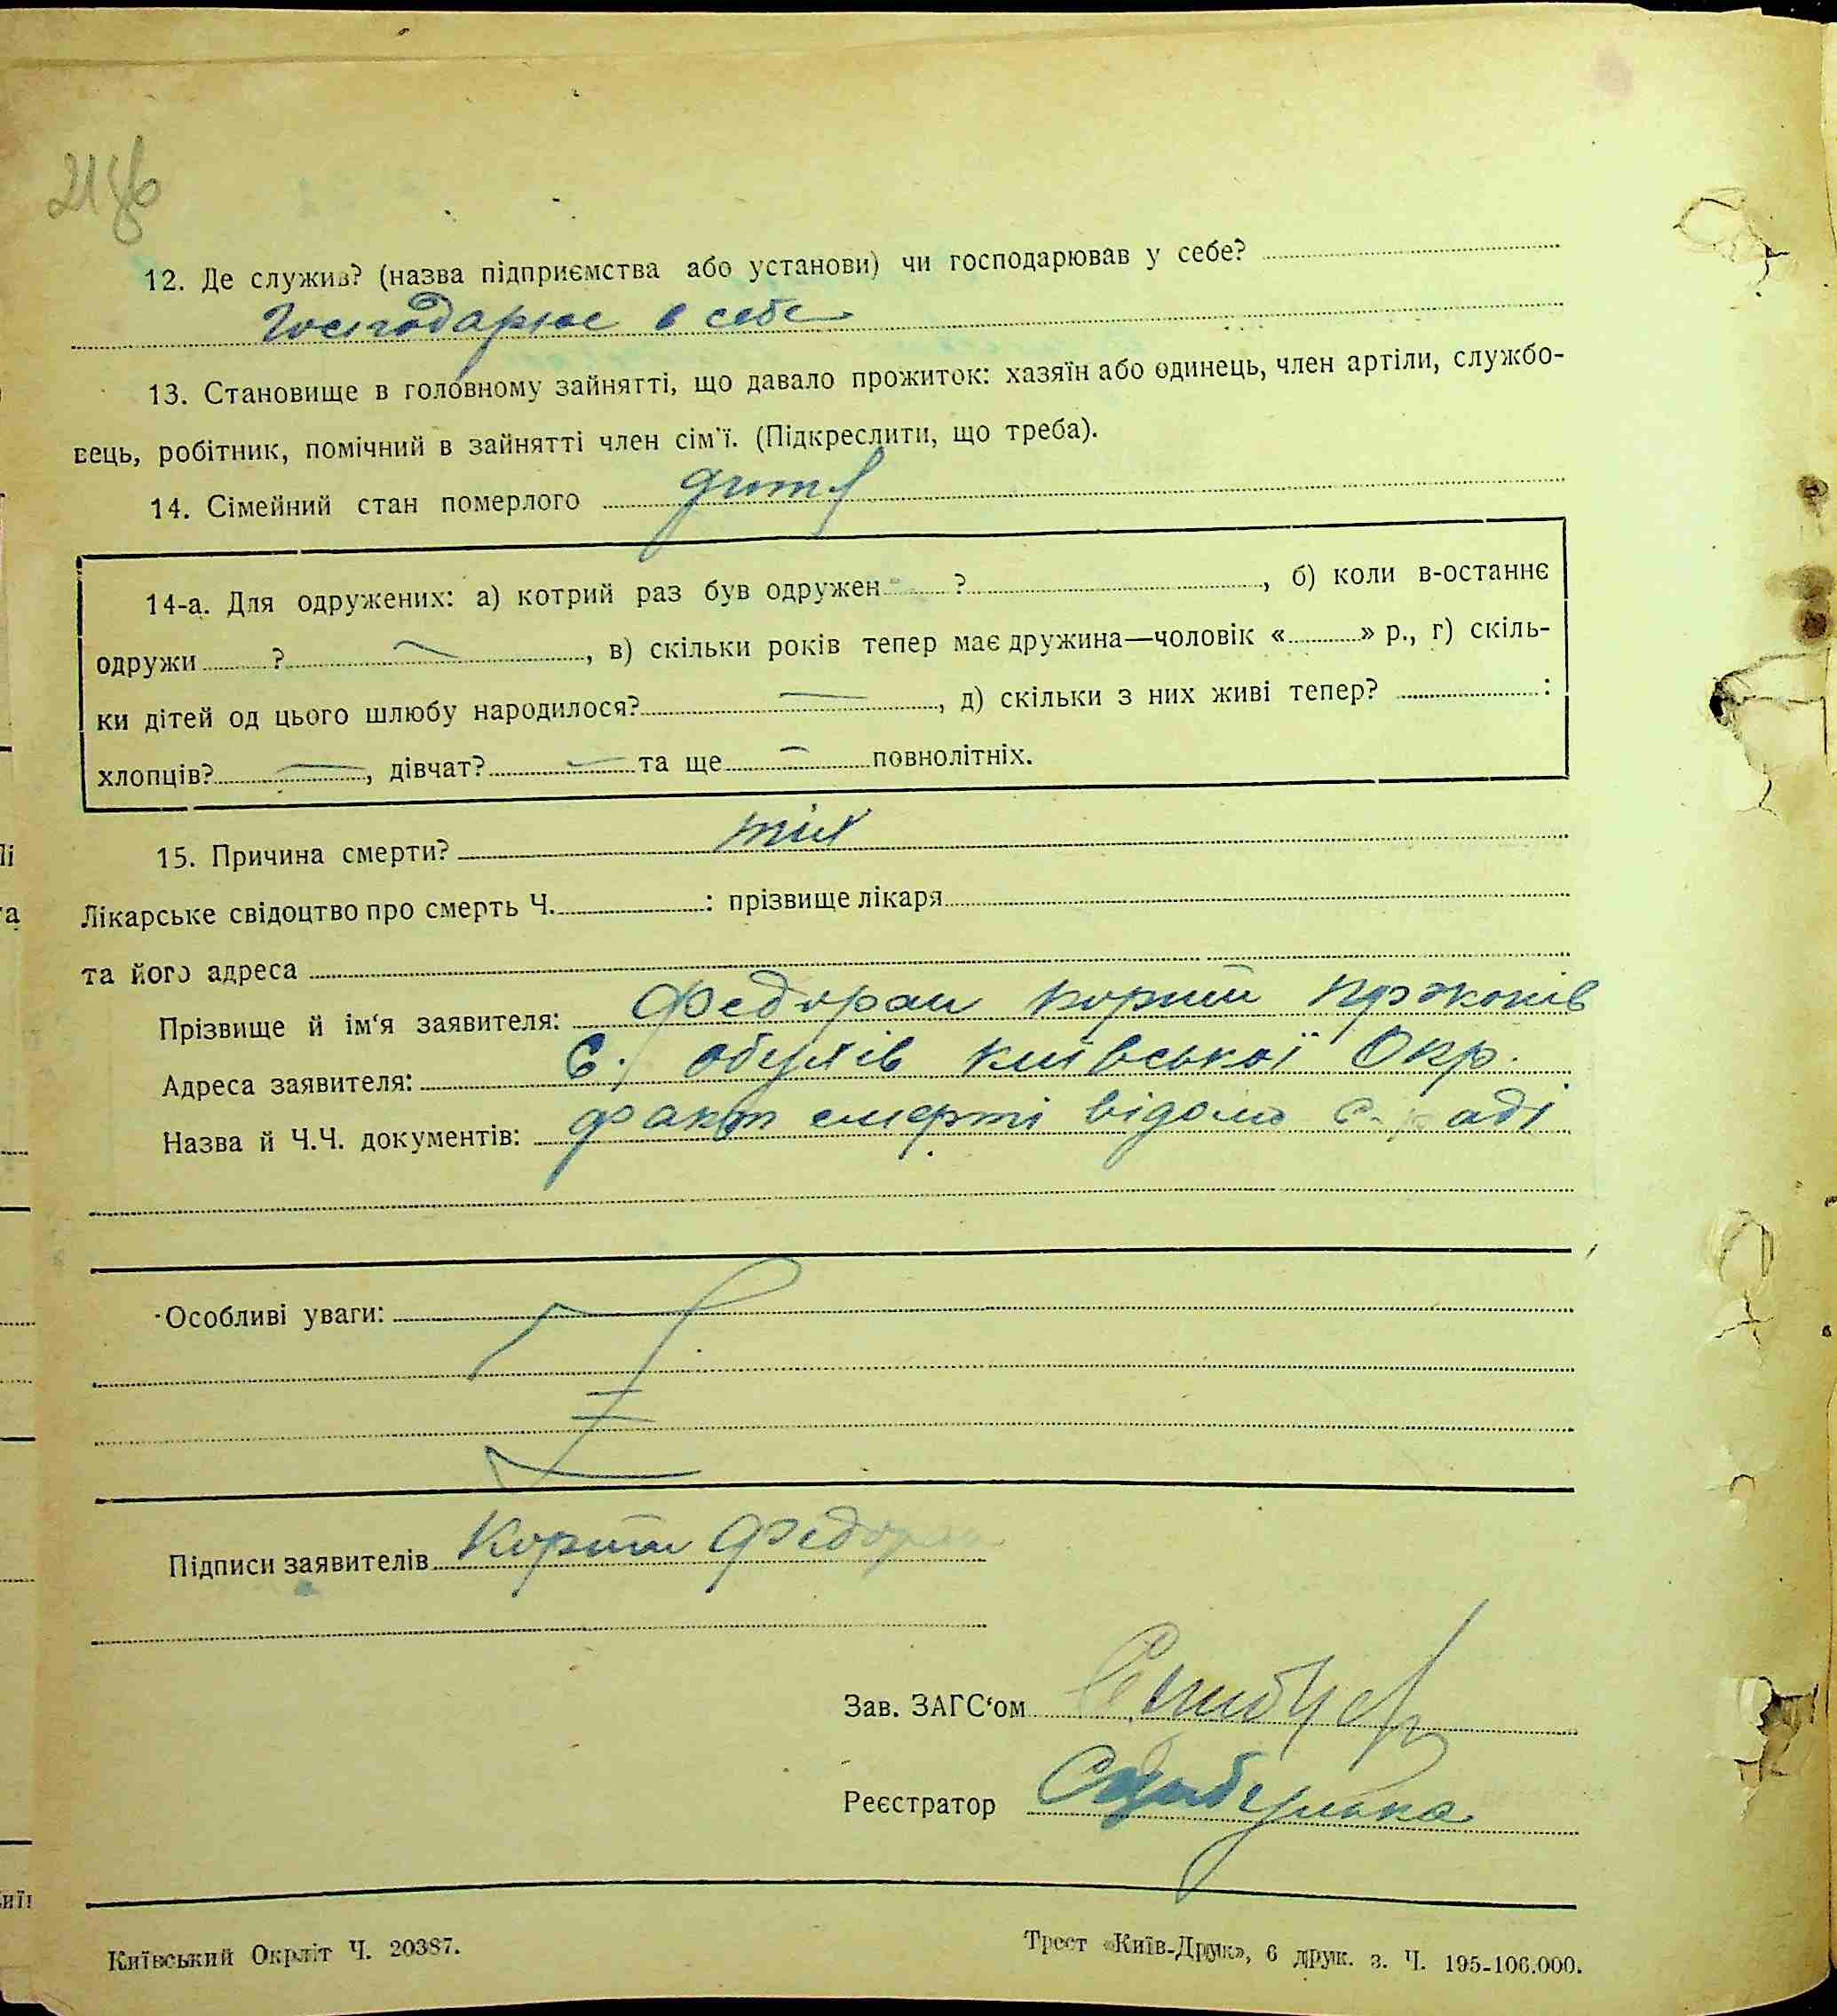 12. Де служив? (назва підприємства або установи) чи господарював у себе?
Господарює в себе
13. Становище в головному зайнятті, що давало прожиток: хазяїн або одинець, член артіли, службо-
вець, робітник, помічний в зайнятті член сім'ї. (Підкреслити, що треба).
14. Сімейний стан померлого дитя
14-а. Для одружених: а) котрий раз був одружен ?, б) коли в-останнє
одружи ?, в) скільки років тепер має дружина—чоловік « » р., г) скіль-
ки дітей од цього шлюбу народилося?, д) скільки з них живі тепер? :
хлопців?, дівчат? та ще повнолітніх.
15. Причина смерти?
Лікарське свідоцтво про смерть Ч. : прізвище лікаря
та його адреса
Прізвище й ім'я заявителя: Федоран Корній
Адреса заявителя: с. Обухів Київської Окр.
Назва й Ч.Ч. документів: факт смерті відомо с-раді
Особливі уваги:
Підписи заявителів Корній Федоран
Зав. ЗАГС'ом
Реєстратор
Київський Окрліт Ч. 20387.
Трест «Київ-Друк», 6 друк. з. Ч. 195-106.000.